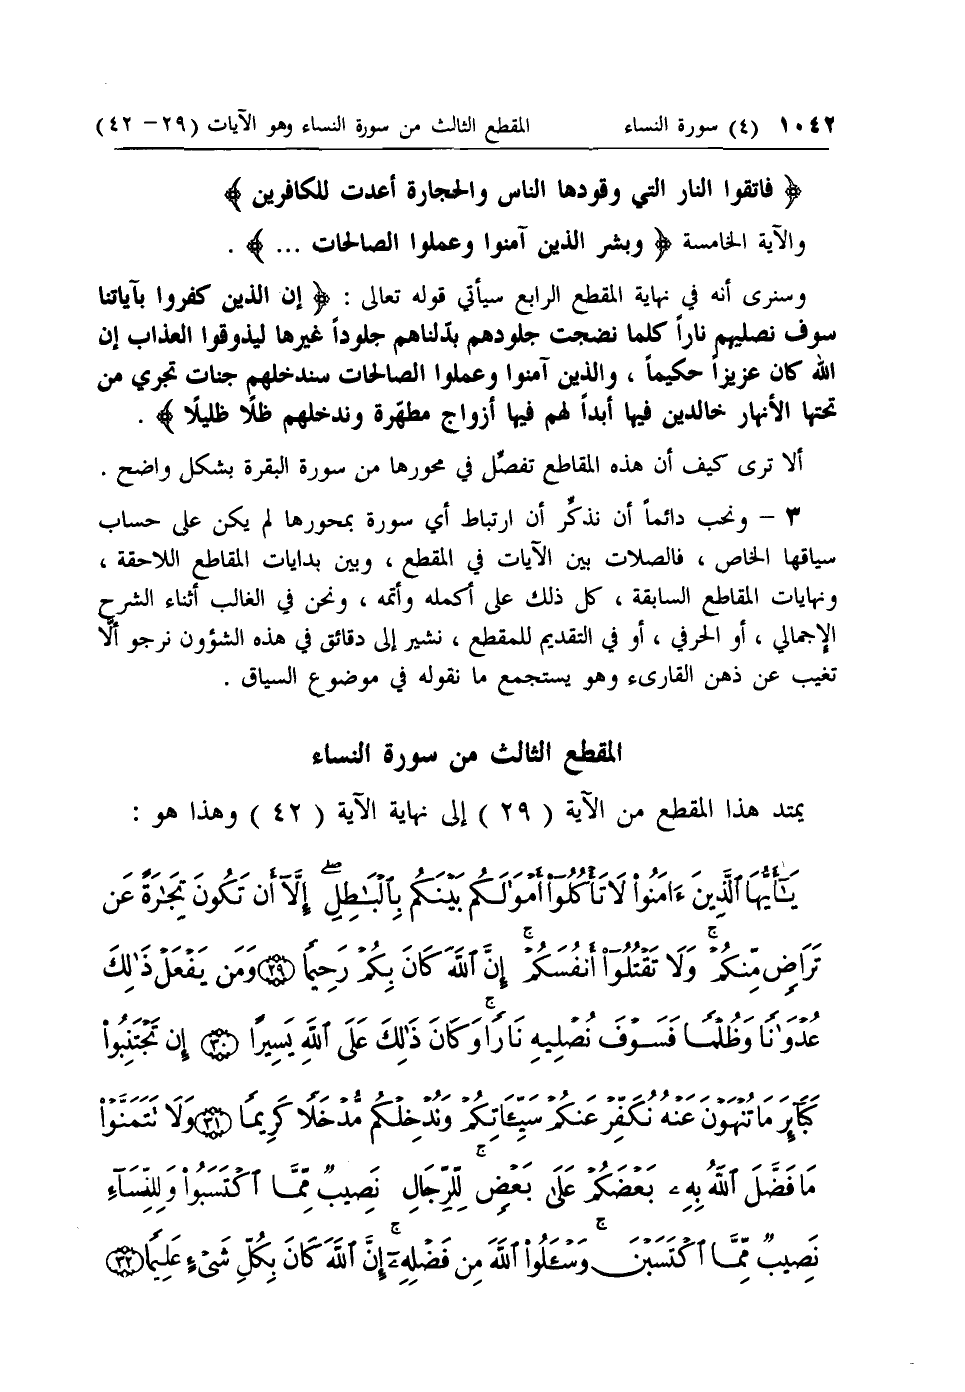 ١٠٤٢ (٤) سورة النساء المقطع الثالث من سورة النساء وهو الآيات (٢٩- ٤٢)
﴿ فاتقوا النار التي وقودها الناس والحجارة أعدت للكافرين ﴾
والآية الخامسة ﴿ وبشر الذين آمنوا وعملوا الصالحات ... ﴾ .
وسنرى أنه في نهاية المقطع الرابع سيأتي قوله تعالى : ﴿ إن الذين كفروا بآياتنا
سوف نصليهم ناراً كلما نضجت جلودهم بدّلناهم جلوداً غيرها ليذوقوا العذاب إن
الله كان عزيزاً حكيماً ، والذين آمنوا وعملوا الصالحات سندخلهم جنات تجري من
تحتها الأنهار خالدين فيها أبداً لهم فيها أزواج مطهّرة وندخلهم ظلًا ظليلًا ﴾ .
ألا ترى كيف أن هذه المقاطع تفصّل في محورها من سورة البقرة بشكل واضح .
٣ - ونحب دائماً أن نذكّر أن ارتباط أي سورة بمحورها لم يكن على حساب
سياقها الخاص ، فالصلات بين الآيات في المقطع ، وبين بدايات المقاطع اللاحقة ،
ونهايات المقاطع السابقة ، كل ذلك على أكمله وأتمه ، ونحن في الغالب أثناء الشرح
الإجمالي ، أو الحرفي ، أو في التقديم للمقطع ، نشير إلى دقائق في هذه الشؤون نرجو ألّا
تغيب عن ذهن القارىء وهو يستجمع ما نقوله في موضوع السياق .
المقطع الثالث من سورة النساء
يمتد هذا المقطع من الآية ( ٢٩ ) إلى نهاية الآية ( ٤٢ ) وهذا هو :
يَـٰٓأَيُّهَا ٱلَّذِينَ ءَامَنُوا۟ لَا تَأْكُلُوٓا۟ أَمْوَٰلَكُم بَيْنَكُم بِٱلْبَـٰطِلِ ۖ إِلَّآ أَن تَكُونَ تِجَـٰرَةً عَن
تَرَاضٍ مِّنكُمْ ۚ وَلَا تَقْتُلُوٓا۟ أَنفُسَكُمْ ۚ إِنَّ ٱللَّهَ كَانَ بِكُمْ رَحِيمًا ﴿٢٩﴾ وَمَن يَفْعَلْ ذَٰلِكَ
عُدْوَٰنًا وَظُلْمًا فَسَوْفَ نُصْلِيهِ نَارًا ۚ وَكَانَ ذَٰلِكَ عَلَى ٱللَّهِ يَسِيرًا ﴿٣٠﴾ إِن تَجْتَنِبُوا۟
كَبَآئِرَ مَا تُنْهَوْنَ عَنْهُ نُكَفِّرْ عَنكُمْ سَيِّـَٔاتِكُمْ وَنُدْخِلْكُم مُّدْخَلًا كَرِيمًا ﴿٣١﴾ وَلَا تَتَمَنَّوْا۟
مَا فَضَّلَ ٱللَّهُ بِهِۦ بَعْضَكُمْ عَلَىٰ بَعْضٍ ۚ لِّلرِّجَالِ نَصِيبٌ مِّمَّا ٱكْتَسَبُوا۟ وَلِلنِّسَآءِ
نَصِيبٌ مِّمَّا ٱكْتَسَبْنَ ۚ وَسْـَٔلُوا۟ ٱللَّهَ مِن فَضْلِهِۦٓ ۚ إِنَّ ٱللَّهَ كَانَ بِكُلِّ شَىْءٍ عَلِيمًا ﴿٣٢﴾